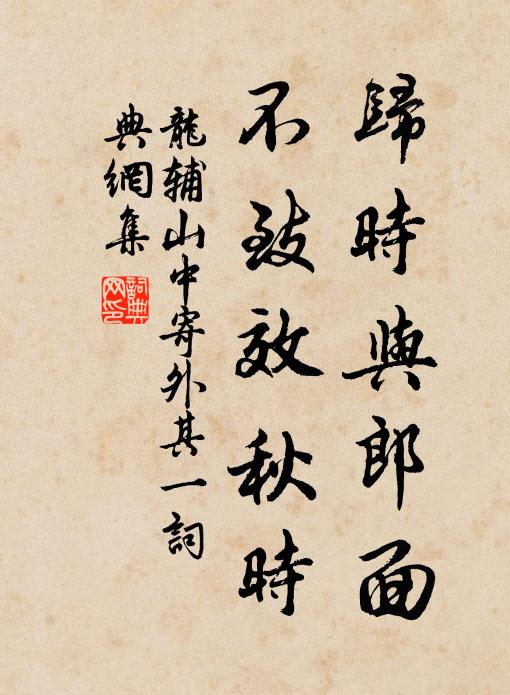 歸時與郎面
不致效秋時
龍辅山中寄外其一詞
典網集
詞典
网印